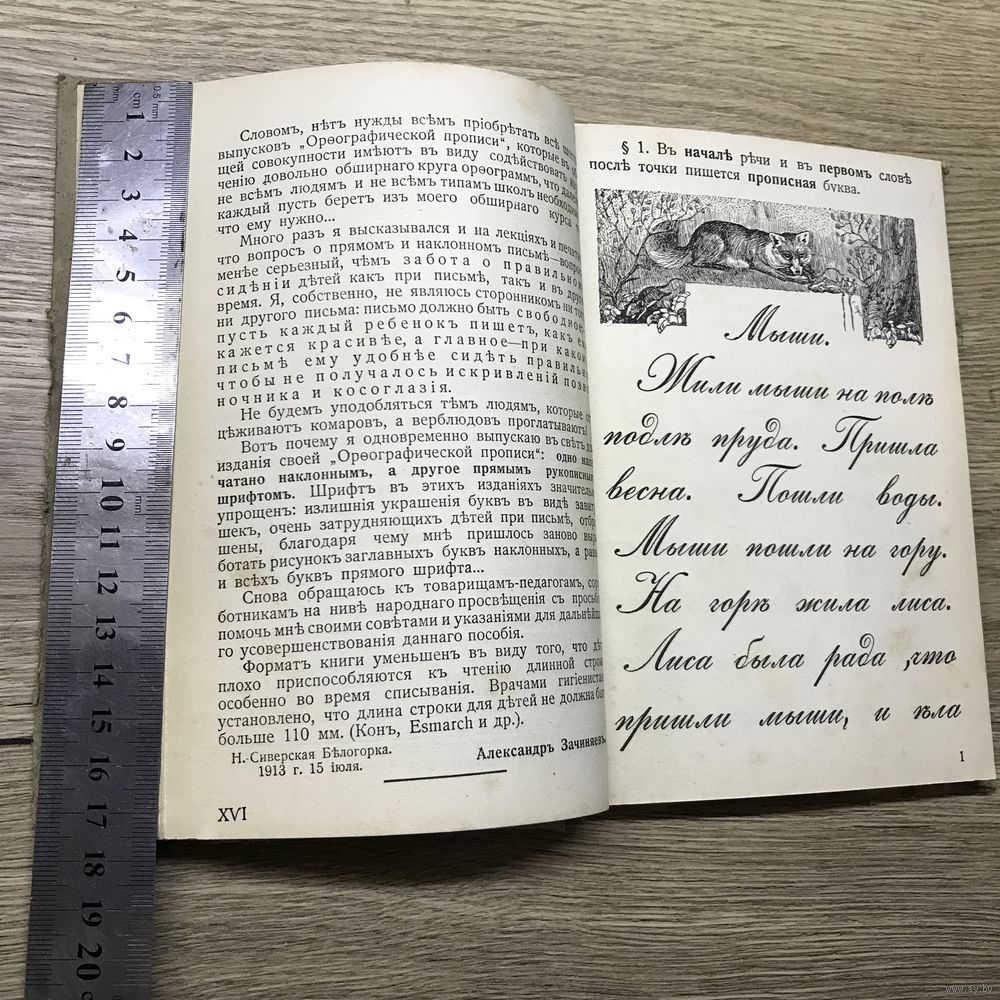 Словомъ, нѣтъ нужды всѣмъ пріобрѣтать всѣ
выпусковъ „Орѳографической прописи“, которые въ
щей совокупности имѣютъ въ виду содѣйствовать
ченію довольно обширнаго круга орѳограммъ, что
не всѣмъ людямъ и не всѣмъ типамъ школъ необходимо
каждый пусть беретъ изъ моего обширнаго курса
что ему нужно...
Много разъ я высказывался и на лекціяхъ и
что вопросъ о прямомъ и наклонномъ письмѣ—вопросъ
менѣе серьезный, чѣмъ забота о правильномъ
сидѣніи дѣтей какъ при письмѣ, такъ и въ
время. Я, собственно, не являюсь сторонникомъ ни
ни другого письма: письмо должно быть свободное
пусть каждый ребенокъ пишетъ, какъ
кажется красивѣе, а главное—при
письмѣ ему удобнѣе сидѣть
чтобы не получалось искривленій
ночника и косоглазія.
Не будемъ уподобляться тѣмъ людямъ, которые
цѣживаютъ комаровъ, а верблюдовъ проглатываютъ!
Вотъ почему я одновременно выпускаю въ свѣтъ
изданія своей „Орѳографической прописи“: одно
чатано наклоннымъ, а другое прямымъ
шрифтомъ. Шрифтъ въ этихъ изданіяхъ
упрощенъ: излишнія украшенія буквъ въ видѣ
шекъ, очень затрудняющихъ дѣтей при письмѣ,
шены, благодаря чему мнѣ пришлось заново
ботать рисунокъ заглавныхъ буквъ наклонныхъ, а
и всѣхъ буквъ прямого шрифта...
Снова обращаюсь къ товарищамъ-педагогамъ,
ботникамъ на нивѣ народнаго просвѣщенія съ
помочь мнѣ своими совѣтами и указаніями для
го усовершенствованія даннаго пособія.
Форматъ книги уменьшенъ въ виду того, что
плохо приспособляются къ чтенію длинной
особенно во время списыванія. Врачами
установлено, что длина строки для дѣтей не должна
больше 110 мм. (Конъ, Esmarch и др.).
Н.-Сиверская Бѣлогорка.
1913 г. 15 іюля.
Александръ Зачиняевъ.
XVI
§ 1. Въ началѣ рѣчи и въ первомъ словѣ
послѣ точки пишется прописная буква.
Мыши.
Жили мыши на полѣ
подлѣ пруда. Пришла
весна. Пошли воды.
Мыши пошли на гору.
На горѣ жила лиса.
Лиса была рада, что
пришли мыши, и ѣла
1
mm
cm
0.5 mm
1
2
3
4
5
6
7
8
9
10
mm
11
12
13
14
15
16
17
18
19
20
www.ay.by